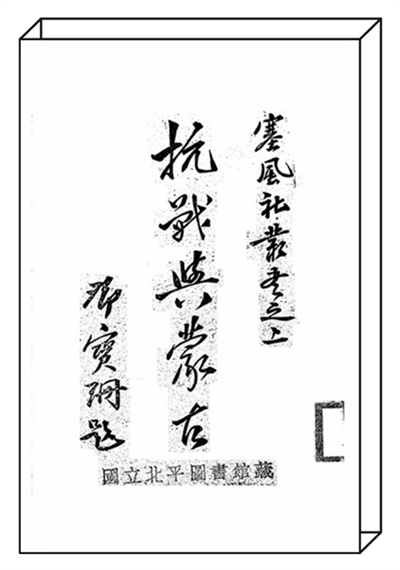 塞風社叢書之上
抗戰與蒙古
鄧寶珊題
國立北平圖書館藏